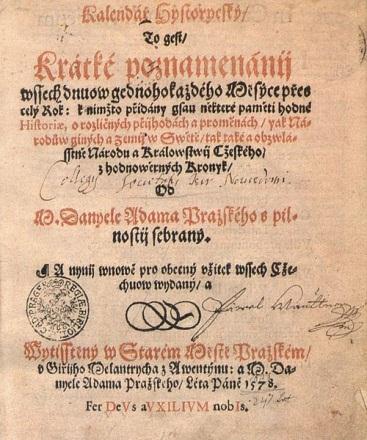 Kalendář Hystorycký/
To gest/
Krátké poznamenánij
wssech dnuow gednohokaždého Měsýce přes
celý Rok: k nimžto přidány gsau některé paměti hodné
Historiæ, o rozličných přijhodách a proměnách/ yak Ná-
rodůw giných a Zemij w Swětě/ tak také a obzwlá-
sstně Národu a Kralowstwij Cžeského/
z hodnowěrných Kronyk/
Od
M. Danyele Adama Pražského s pil-
nostij sebraný.
A nynij wnowě pro obecný vžitek wssech Cže-
chuow wydaný/ a
Wytisstěný w Starém Městě Pražském/
v Giřijho Melantrycha z Awentýnu: a M. Da-
nyele Adama Pražského/ Léta Páně 1578.
Fer DeVs aVXILIVM nobIs.